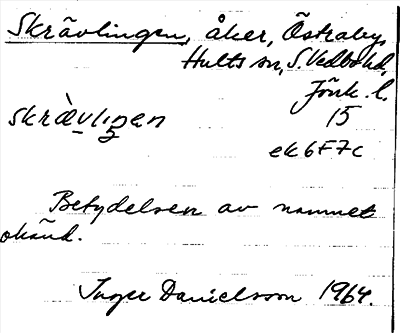 Skrävlingen, åker, Östraby,
Hults sn, S. Vedbo hd,
Jönk. l.
skrævlıŋen 15
ek 6F7c
Betydelsen av namnet
okänd.
Inger Danielsson 1964.